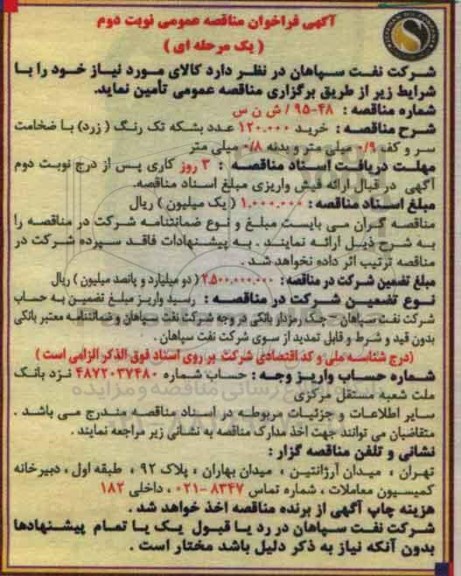 آگهی فراخوان مناقصه عمومی نوبت دوم
( یک مرحله ای )
شرکت نفت سپاهان در نظر دارد کالای مورد نیاز خود را با
شرایط زیر از طریق برگزاری مناقصه عمومی تأمین نماید.
شماره مناقصه : ۴۸-۹۵ / ش ن س
شرح مناقصه : خرید ۱۲۰.۰۰۰ عدد بشکه تک رنگ ( زرد) با ضخامت
سر و کف ۰/۹ میلی متر و بدنه ۰/۸ میلی متر
مهلت دریافت اسناد مناقصه : ۳ روز کاری پس از درج نوبت دوم
آگهی در قبال ارائه فیش واریزی مبلغ اسناد مناقصه.
مبلغ اسناد مناقصه : ۱.۰۰۰.۰۰۰ ( یک میلیون ) ریال
مناقصه گران می بایست مبلغ و نوع ضمانتنامه شرکت در مناقصه را
به شرح ذیل ارائه نمایند . به پیشنهادات فاقد سپرده شرکت در
مناقصه ترتیب اثر داده نخواهد شد .
مبلغ تضمین شرکت در مناقصه : ۲.۵۰۰.۰۰۰.۰۰۰ ( دو میلیارد و پانصد میلیون ) ریال
نوع تضمین شرکت در مناقصه : رسید واریز مبلغ تضمین به حساب
شرکت نفت سپاهان - چک رمزدار بانکی در وجه شرکت نفت سپاهان و ضمانتنامه معتبر بانکی
بدون قید و شرط و قابل تمدید از سوی شرکت نفت سپاهان .
(درج شناسه ملی و کد اقتصادی شرکت بر روی اسناد فوق الذکر الزامی است )
شماره حساب واریز وجه : حساب شماره ۴۸۷۲۰۳۷۴۸۰ نزد بانک
ملت شعبه مستقل مرکزی
سایر اطلاعات و جزئیات مربوطه در اسناد مناقصه مندرج می باشد .
متقاضیان می توانند جهت اخذ مدارک مناقصه به نشانی زیر مراجعه نمایند .
نشانی و تلفن مناقصه گزار :
تهران ، میدان آرژانتین ، میدان بهاران ، پلاک ۹۲ ، طبقه اول ، دبیرخانه
کمیسیون معاملات ، شماره تماس ۸۳۴۷-۰۲۱ ، داخلی ۱۸۲
هزینه چاپ آگهی از برنده مناقصه اخذ خواهد شد .
شرکت نفت سپاهان در رد یا قبول یک یا تمام پیشنهادها
بدون آنکه نیاز به ذکر دلیل باشد مختار است .